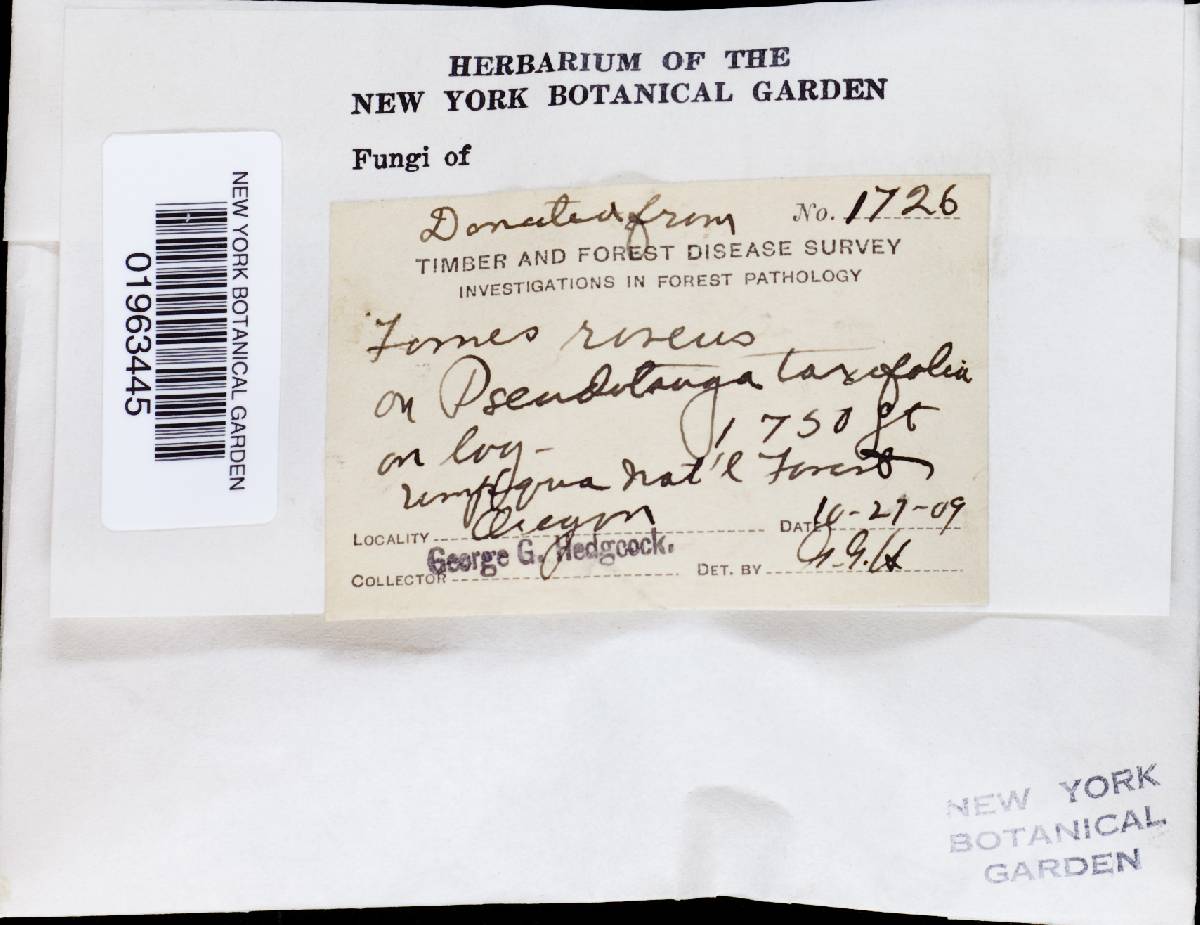 HERBARIUM OF THE
NEW YORK BOTANICAL GARDEN
Fungi of
NEW YORK BOTANICAL GARDEN
01963445
Donated from No. 1726
TIMBER AND FOREST DISEASE SURVEY
INVESTIGATIONS IN FOREST PATHOLOGY
Fomes roseus
on Pseudotsuga taxifolia
on log- 1750 ft
Umpqua Nat'l Forest
LOCALITY Oregon DATE 10-27-09
COLLECTOR George G. Hedgcock. DET. BY G.G.H
NEW YORK
BOTANICAL
GARDEN